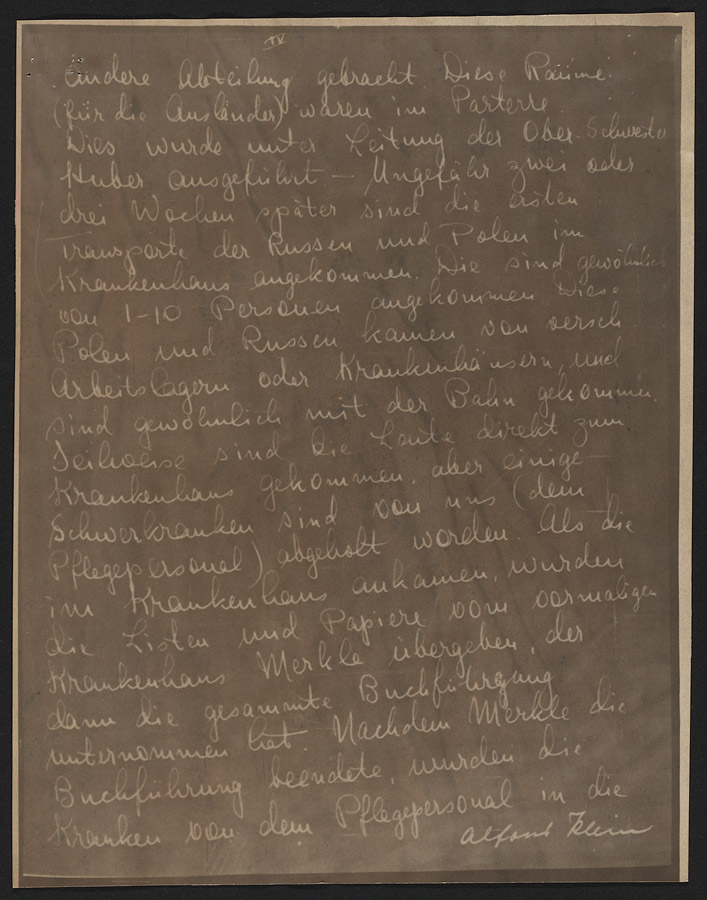 IV
andere Abteilung gebracht. Diese Räume
(für die Ausländer) waren im Parterre
Dies wurde unter Leitung der Ober-Schwester
Huber ausgeführt – Ungefähr zwei oder
drei Wochen später sind die ersten
Transporte der Russen und Polen im
Krankenhaus angekommen. Die sind gewöhnlich
von 1-10 Personen angekommen Diese
Polen und Russen kamen von versch.
Arbeitslagern oder Krankenhäusern, und
sind gewöhnlich mit der Bahn gekommen.
Teilweise sind die Leute direkt zum
Krankenhaus gekommen, aber einige
Schwerkranken sind von uns (dem
Pflegepersonal) abgeholt worden. Als die
im Krankenhaus ankamen, wurden
die Listen und Papiere vom vormaligen
Krankenhaus Merkle übergeben, der
dann die gesammte Buchführgung
unternommen hat. Nachdem Merkle die
Buchführung beendete, wurden die
Kranken von dem Pflegepersonal in die
Alfons Klein